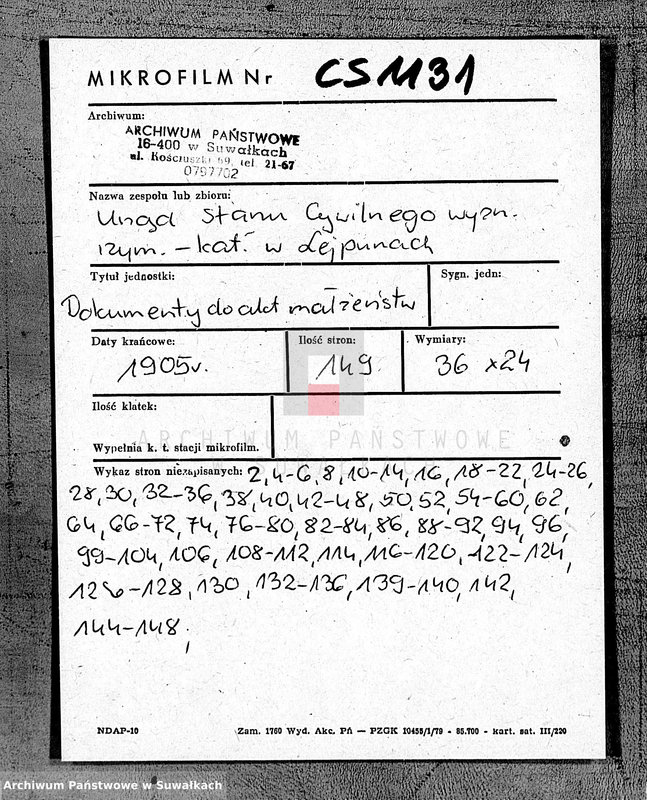 MIKROFILM Nr CS1131
Archiwum:
ARCHIWUM PAŃSTWOWE
16-400 w Suwałkach
ul. Kościuszki 69, tel. 21-67
0797702
Nazwa zespołu lub zbioru:
Urząd Stanu Cywilnego wyzn.
rzym. – kat. w Lejpunach
Tytuł jednostki: Sygn. jedn:
Dokumenty do akt małżeństw
Daty krańcowe: Ilość stron: Wymiary:
1905r. 149. 36 x24
Ilość klatek:
ARCHIWUM PAŃSTWOWE
Wypełnia k. t. stacji mikrofilm.
Wykaz stron niezapisanych: 2, 4-6, 8, 10-14, 16, 18-22, 24-26,
28, 30, 32-36, 38, 40, 42-48, 50, 52, 54-60, 62,
64, 66-72, 74, 76-80, 82-84, 86, 88-92, 94, 96,
99-104, 106, 108-112, 114, 116-120, 122-124,
126-128, 130, 132-136, 139-140, 142,
144-148,
NDAP-10 Zam. 1760 Wyd. Akc. Pń — PZGK 10455/1/79 - 85.700 - kart. sat. III/220
Archiwum Państwowe w Suwałkach